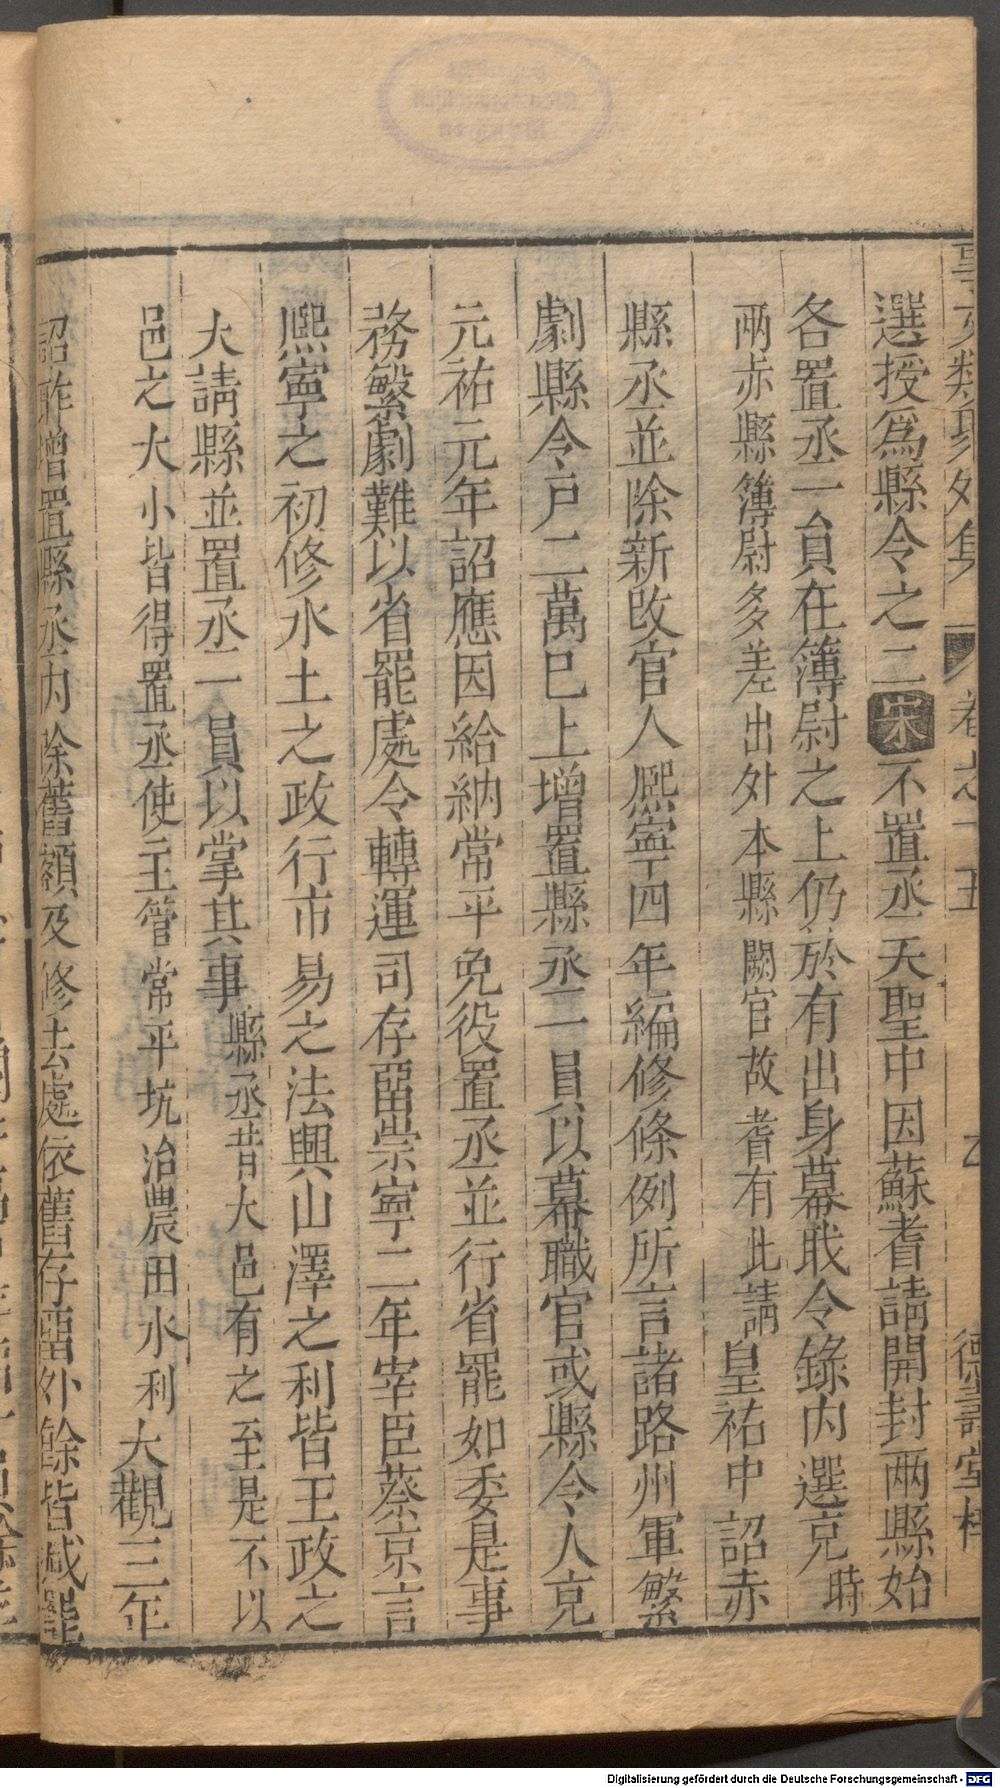 事文類聚外集 卷之十五 德壽堂梓
選授爲縣令之二宋不置丞天聖中因蘇耆請開封两縣始
各置丞一員在簿尉之上仍於有出身幕職令錄内選充時
两赤縣簿尉多差出外本縣闕官故耆有此請皇祐中詔赤
縣丞並除新改官人熈寧四年編修條例所言諸路州軍繁
劇縣令戸二萬巳上增置縣丞一員以幕職官或縣令人充
元祐元年詔應因給納常平免役置丞並行省罷如委是事
務繁劇難以省罷處令轉運司存畱崇寧二年宰臣蔡京言
熈寧之初修水土之政行市易之法興山澤之利皆王政之
大請縣並置丞一員以掌其事縣丞昔大邑有之至是不以
邑之大小皆得置丞使主管常平坑冶農田水利大觀三年
詔昨增置縣丞内除舊額及修去處依舊存畱外餘皆减罷
Digitalisierung gefördert durch die Deutsche Forschungsgemeinschaft - DFG